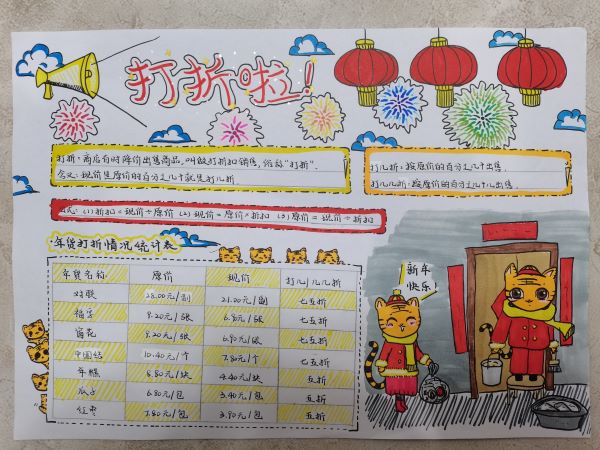 打折啦！
打折：商店有时降价出售商品，叫做打折扣销售，俗称"打折"。
含义：现价是原价的百分之几十就是几折
打几折：按原价的百分之几十出售.
打几几折：按原价的百分之几十几出售.
公式：(1)折扣=现价÷原价 (2)现价=原价×折扣 (3)原价=现价÷折扣
·年货打折情况统计表
年货名称 原价 现价 打几/几几折
对联 28.00元/副 21.00元/副 七五折
福字 9.20元/张 6.90元/张 七五折
窗花 9.20元/张 6.90元/张 七五折
中国结 10.40元/个 7.80元/个 七五折
年糕 8.80元/块 4.40元/块 五折
瓜子 6.80元/包 3.40元/包 五折
红枣 7.80元/包 3.90元/包 五折
新年
快乐！